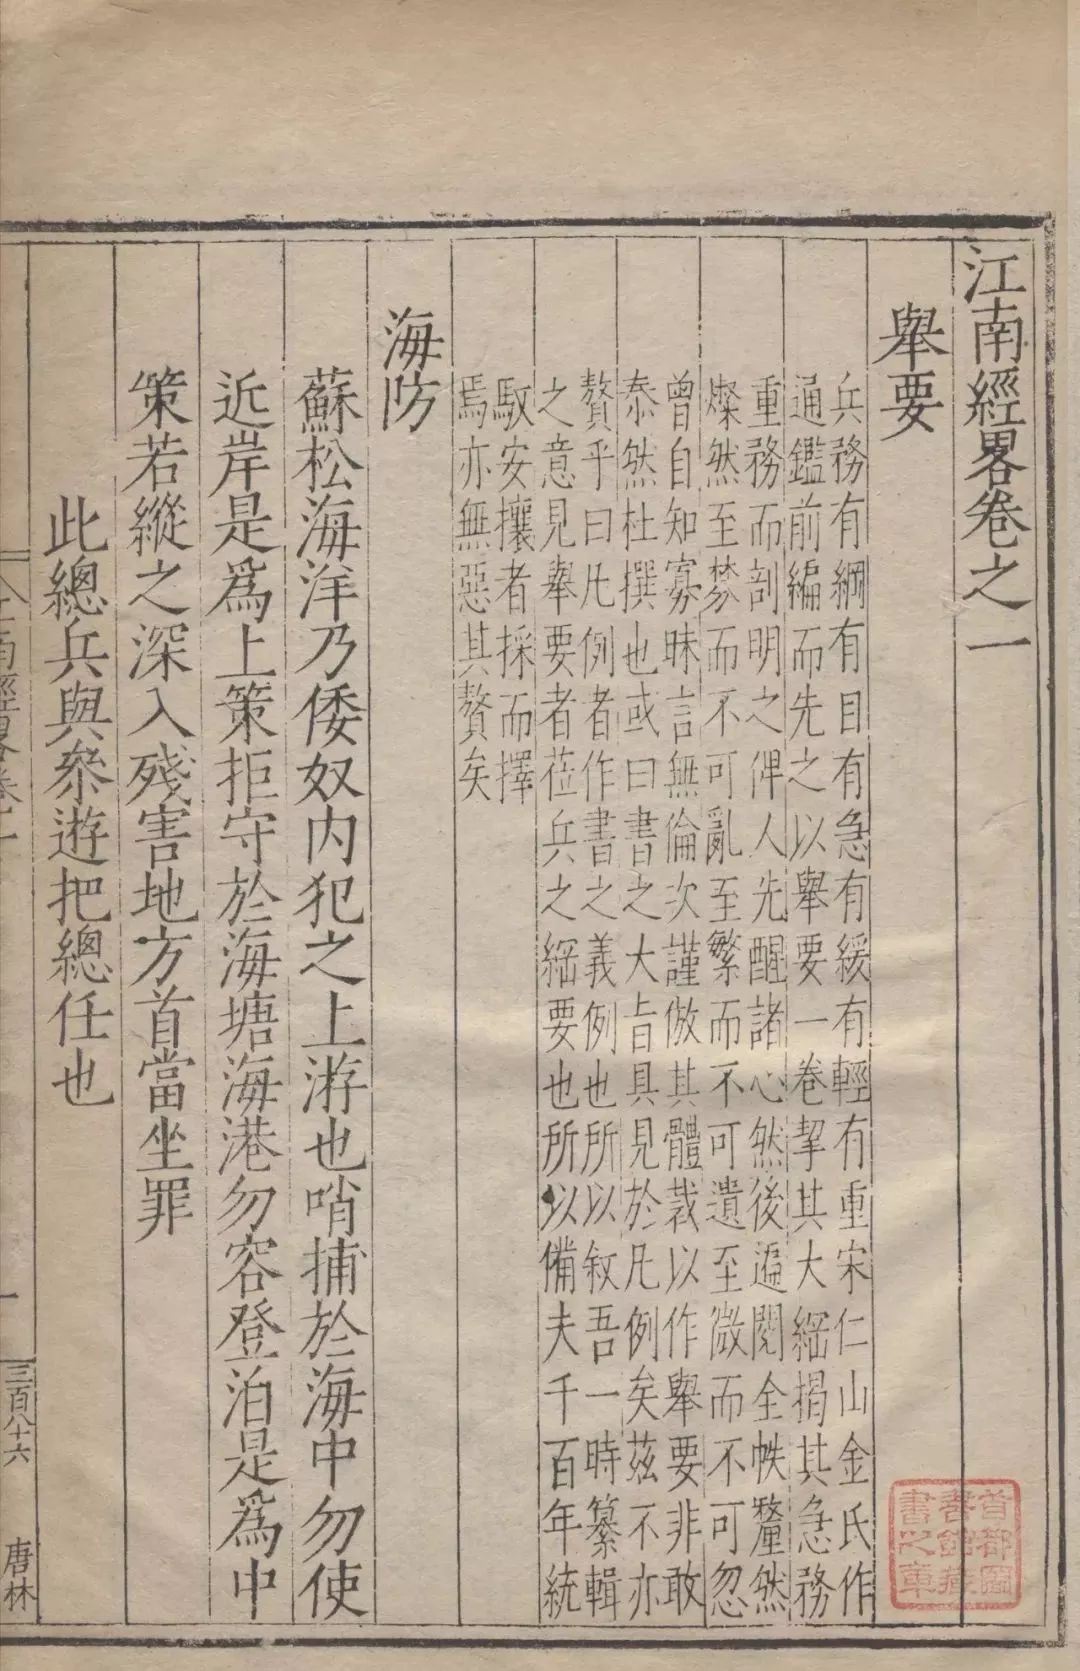 江南經畧卷之一
舉要
兵務有綱有目有急有緩有輕有重宋仁山金氏作
通鑑前編而先之以舉要一卷挈其大綱揭其急務
重務而剖明之俾人先醒諸心然後遍閱全帙釐然
燦然至棼而不可亂至繁而不可遺至微而不可忽
曾自知寡昧言無倫次謹倣其體裁以作舉要非敢
泰然杜撰也或曰書之大旨具見於凡例矣茲不亦
贅乎曰凡例者作書之義例也所以敘吾一時纂輯
之意見舉要者莅兵之綱要也所以備夫千百年統
馭安攘者採而擇
焉亦無惡其贅矣
海防
蘇松海洋乃倭奴內犯之上游也哨捕於海中勿使
近岸是爲上策拒守於海塘海港勿容登泊是爲中
策若縱之深入殘害地方首當坐罪
此總兵與叅遊把總任也
江南經畧卷一
一
三百八十六
唐林
首都圖
書館藏
書之章